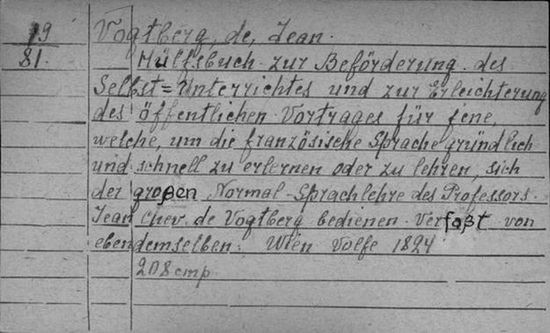 19 Vogtberg, de, Jean.
81. Hülfsbuch zur Beförderung des
Selbst=Unterrichtes und zur Erleichterung
des öffentlichen Vortrages für jene,
welche, um die französische Sprache gründlich
und schnell zu erlernen oder zu lehren, sich
der großen Normal-Sprachlehre des Professors
Jean Chev. de Vogtberg bedienen. Verfaßt von
ebendemselben. Wien Volfe 1824
208 стр